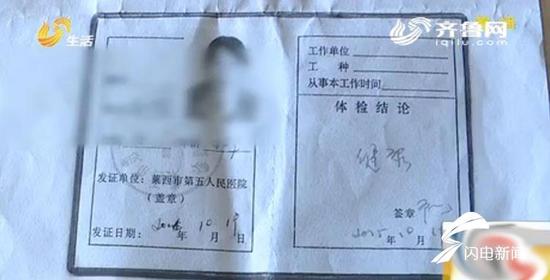 生活
齐鲁网
iqilu.com
发证单位：莱西市第五人民医院
（盖章）
发证日期： 年10月19日
工作单位
工 种
从事本工作时间
体检结论
健康
签章
2015.10.
闪电新闻